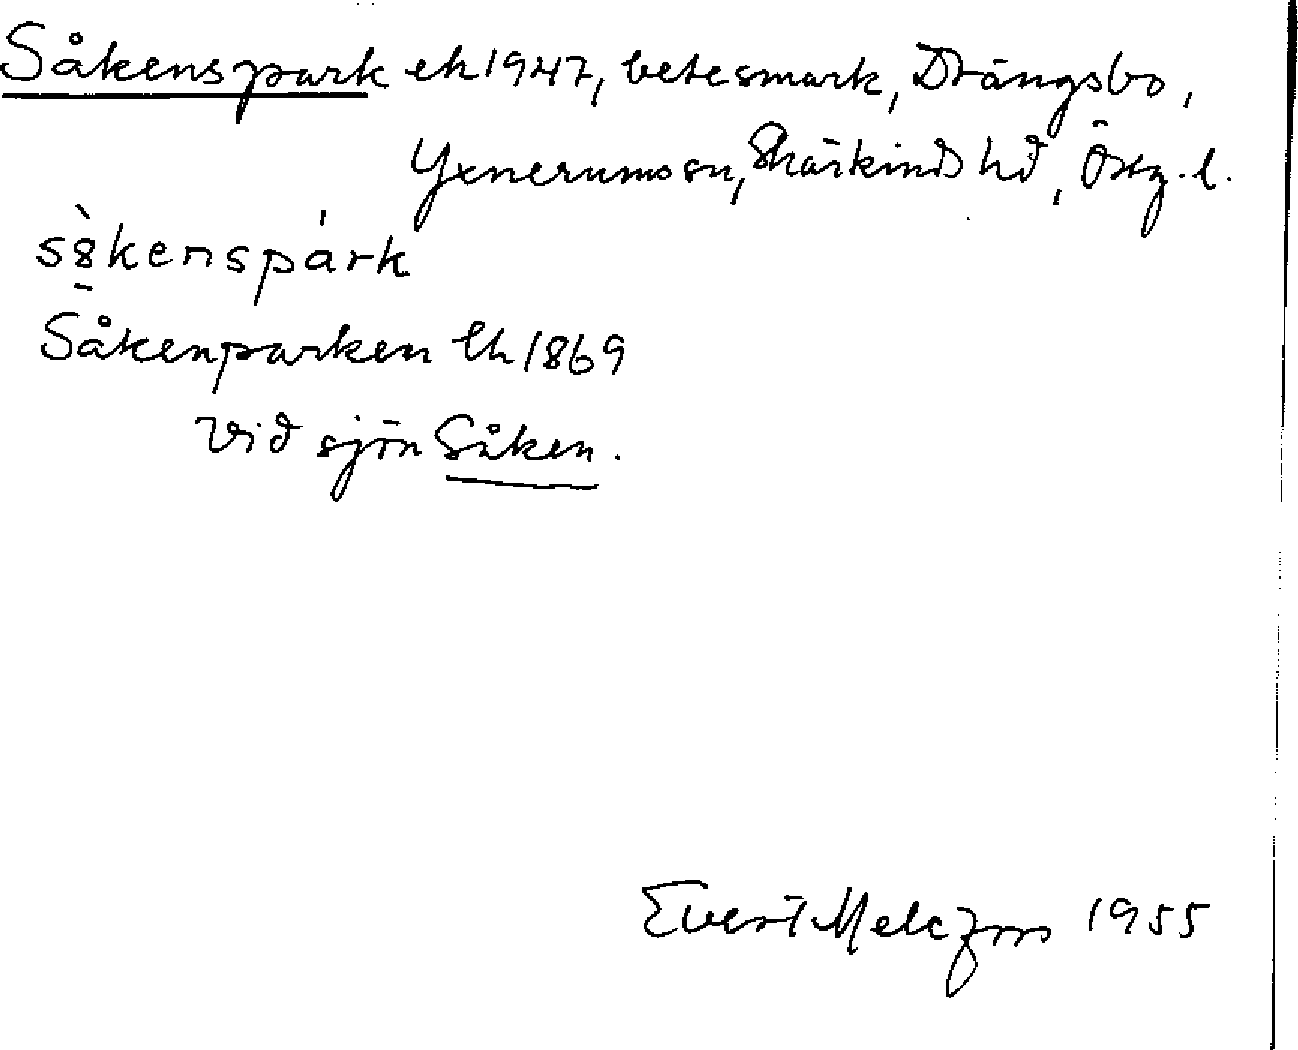 Såkenspark ek 1947, betesmark, Drängsbo,
Yxnerums sn, Skärkinds hd, Östg. l.
sòkenspárk
Såkenparken Ek 1869
Vid sjön Såken.
Evert Melefors 1955